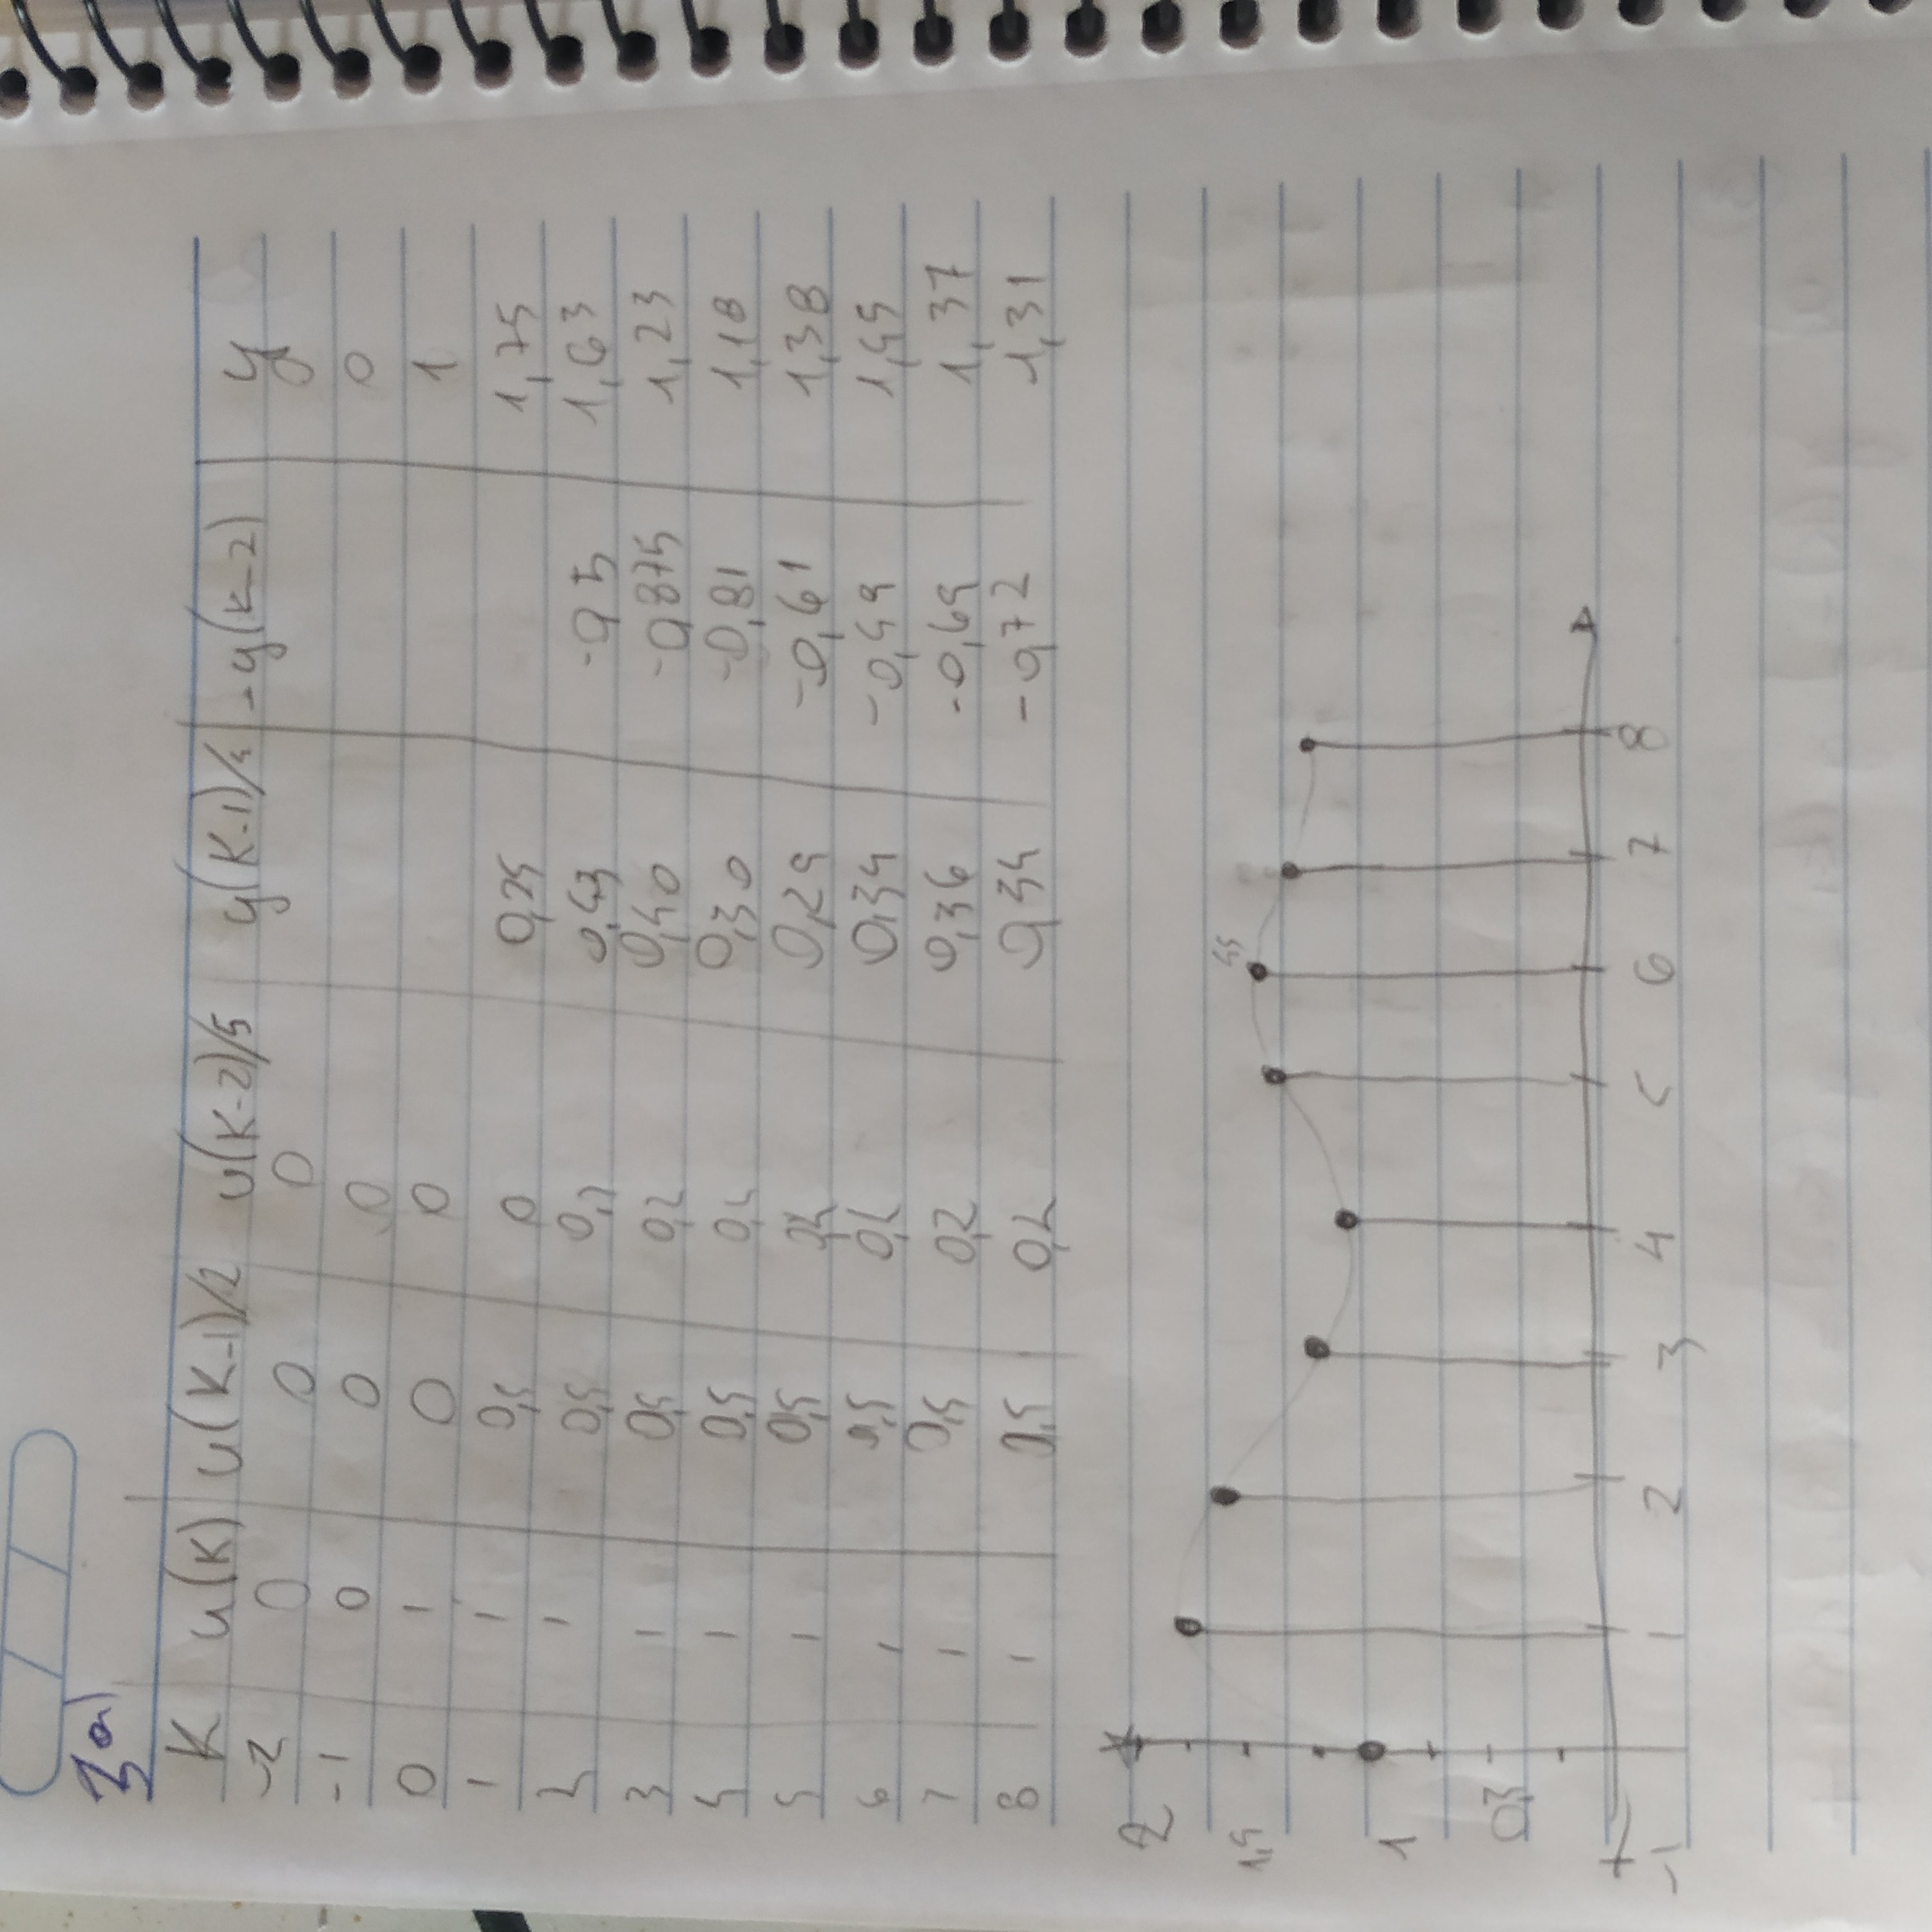 3a)
K u(K) u(K-1)/2 u(K-2)/5 y(K-1)/4 -y(K-2) y
-2 0 0 0 0
-1 0 0 0 0
0 1 0 0 1
1 1 0,5 0 0,25 1,75
2 1 0,5 0,2 0,43 -0,5 1,63
3 1 0,5 0,2 0,40 -0,875 1,23
4 1 0,5 0,2 0,30 -0,81 1,18
5 1 0,5 0,2 0,29 -0,61 1,38
6 1 0,5 0,2 0,34 -0,59 1,45
7 1 0,5 0,2 0,36 -0,69 1,37
8 1 0,5 0,2 0,34 -0,72 1,31
2
45
1,5
1
-1 1 2 3 4 5 6 7 8